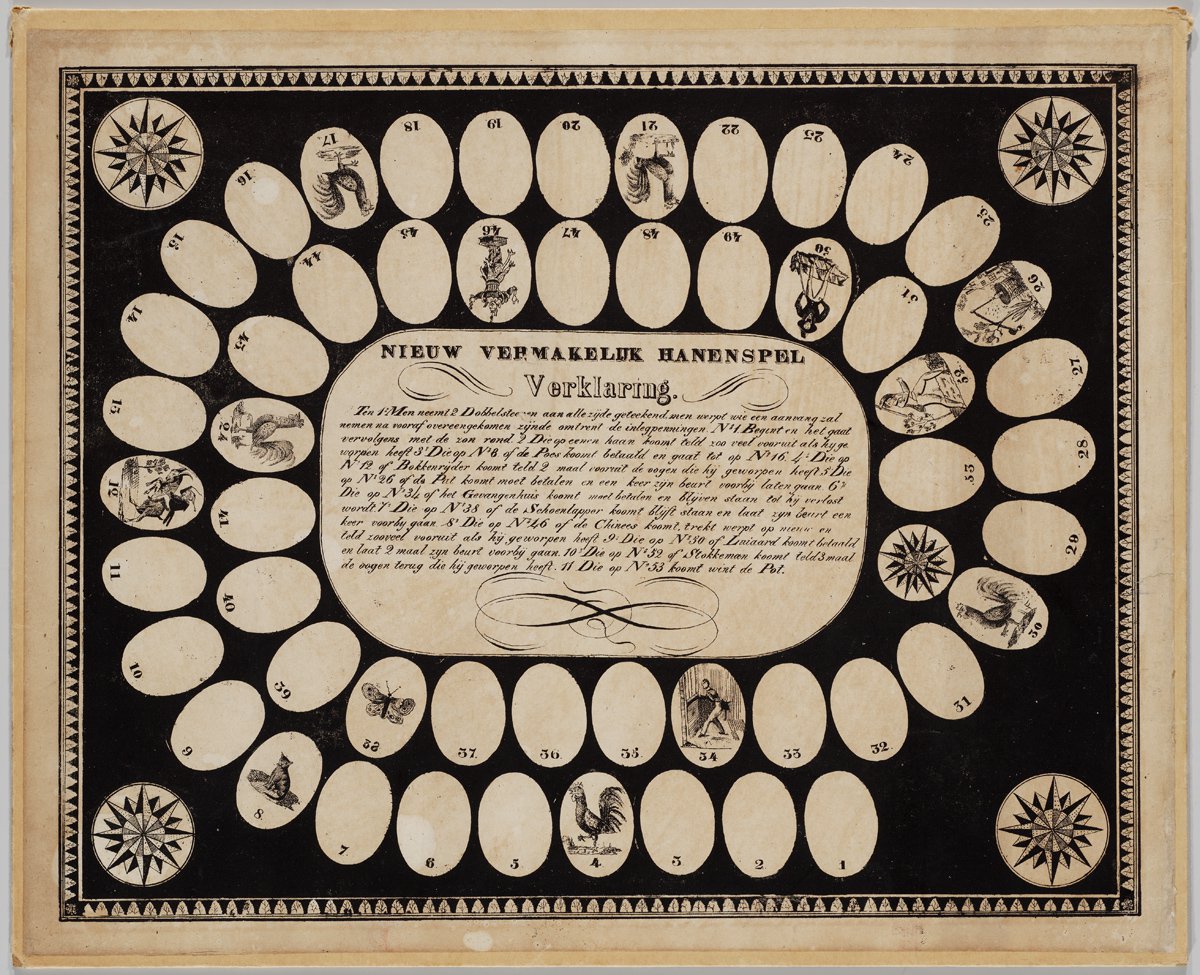 NIEUW VERMAKELIJK HANENSPEL
Verklaring.
Ten 1e Men neemt 2 Dobbelsteenen aan alle zijde geteekend, men werpt wie een aanvang zal
nemen na vooraf overeengekomen zijnde omtrent de inlegpenningen. No 1 Begint en het gaat
vervolgens met de zon rond. 2 Die op eenen haan koomt teld zoo veel vooruit als hij ge
worpen heeft 3e Die op No 8 of de Poes koomt betaald en gaat tot op No 16. 4e Die op
No 12 of Bokkenrijder koomt teld 2 maal vooruit de oogen die hij geworpen heeft 5e Die
op No 26 of de Put koomt moet betalen en een keer zijn beurt voorbij laten gaan. 6e
Die op No 34 of het Gevangenhuis koomt moet betalen en blijven staan tot hij verlost
wordt. 7e Die op No 38 of de Schoenlapper koomt blijft staan en laat zijn beurt een
keer voorbij gaan. 8e Die op No 46 of de Chinees koomt, trekt werpt op nieuw en
teld zooveel vooruit als hij geworpen heeft 9e Die op No 50 of Luiaard koomt betaald
en laat 2 maal zyn beurt voorbij gaan. 10e Die op No 52 of Stokkeman koomt teld 3 maal
de oogen terug die hij geworpen heeft. 11 Die op No 53 koomt wint de Pot.
1
2
3
4
5
6
7
8
9
10
11
12
13
14
15
16
17
18
19
20
21
22
23
24
25
26
27
28
29
30
31
32
33
34
35
36
37
38
39
40
41
42
43
44
45
46
47
48
49
50
51
52
53